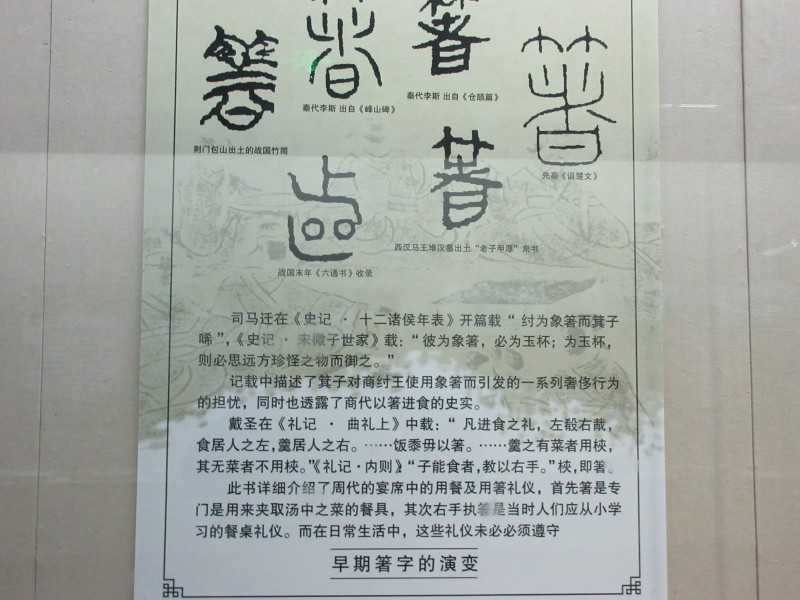 秦代李斯 出自《仓颉篇》
秦代李斯 出自《峰山碑》
荆门包山出土的战国竹简
先秦《诅楚文》
西汉马王堆汉墓出土“老子甲厚”帛书
战国末年《六通书》收录
司马迁在《史记 · 十二诸侯年表》开篇载“ 纣为象箸而箕子
唏”,《史记 · 宋微子世家》载:“彼为象箸，必为玉杯；为玉杯,
则必思远方珍怪之物而御之。”
记载中描述了箕子对商纣王使用象箸而引发的一系列奢侈行为
的担忧，同时也透露了商代以箸进食的史实。
戴圣在《礼记 · 曲礼上》中载:“ 凡进食之礼，左殽右胾,
食居人之左,羹居人之右。……饭黍毋以箸。……羹之有菜者用梜,
其无菜者不用梜。”《礼记·内则》“子能食者,教以右手。”梜,即箸。
此书详细介绍了周代的宴席中的用餐及用箸礼仪，首先箸是专
门是用来夹取汤中之菜的餐具，其次右手执箸是当时人们应从小学
习的餐桌礼仪。而在日常生活中，这些礼仪未必必须遵守
早期箸字的演变